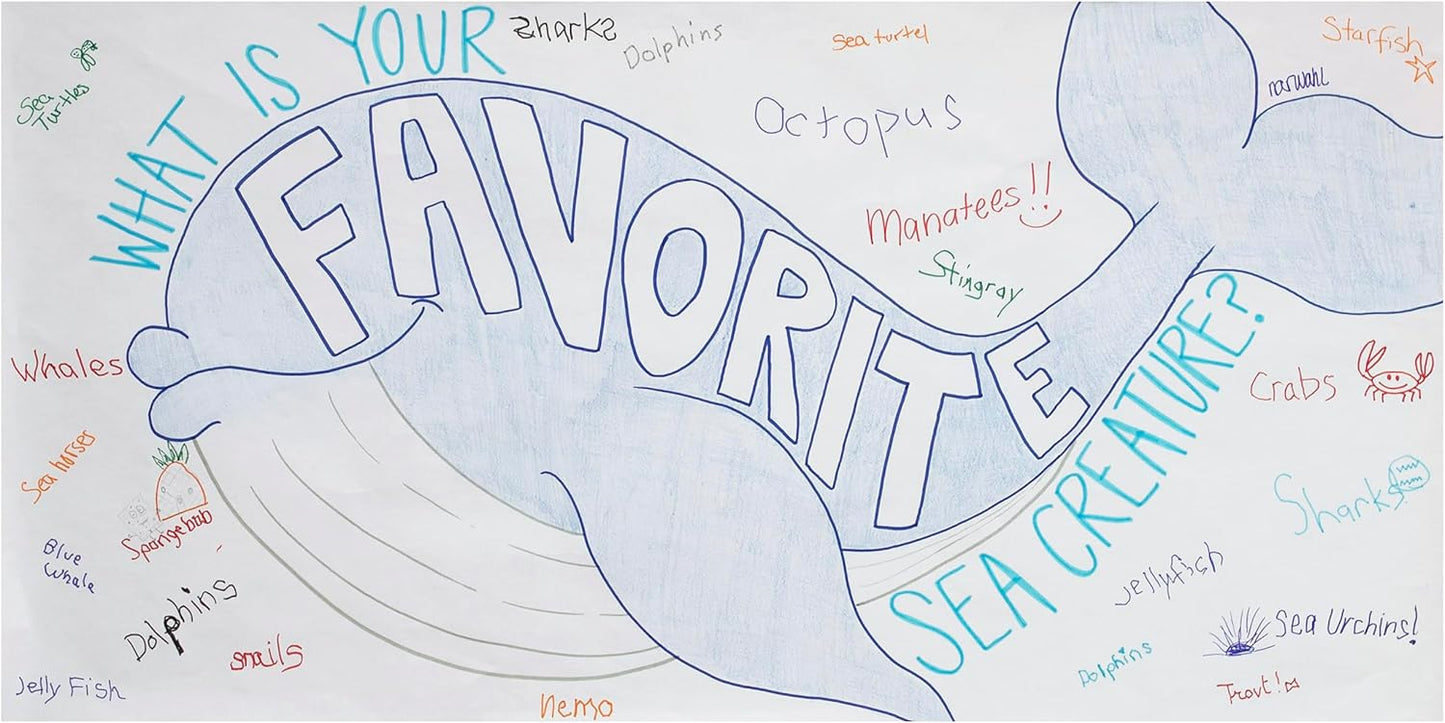 WHAT IS YOUR
FAVORITE
SEA CREATURE?
Sharks
Dolphins
Sea turtel
Starfish
narwahl
Sea
Turtles
Octopus
Manatees!!
Stingray
Whales
Crabs
Sea horses
Spongebob
Sharks
Blue
Whale
Jellyfish
Dolphins
Sea Urchins!
snails
Dolphins
Jelly Fish
Trout!
Nemo